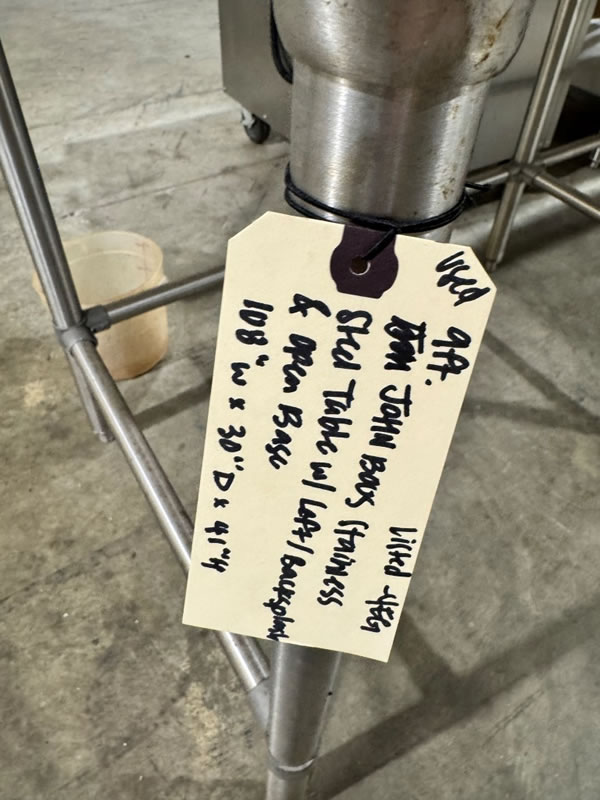 Used 9ft. Listed
JOHN BOOS Stainless
Steel Table w/ Left/Backsplash
& Open Base
108" W x 30" D x 41"H